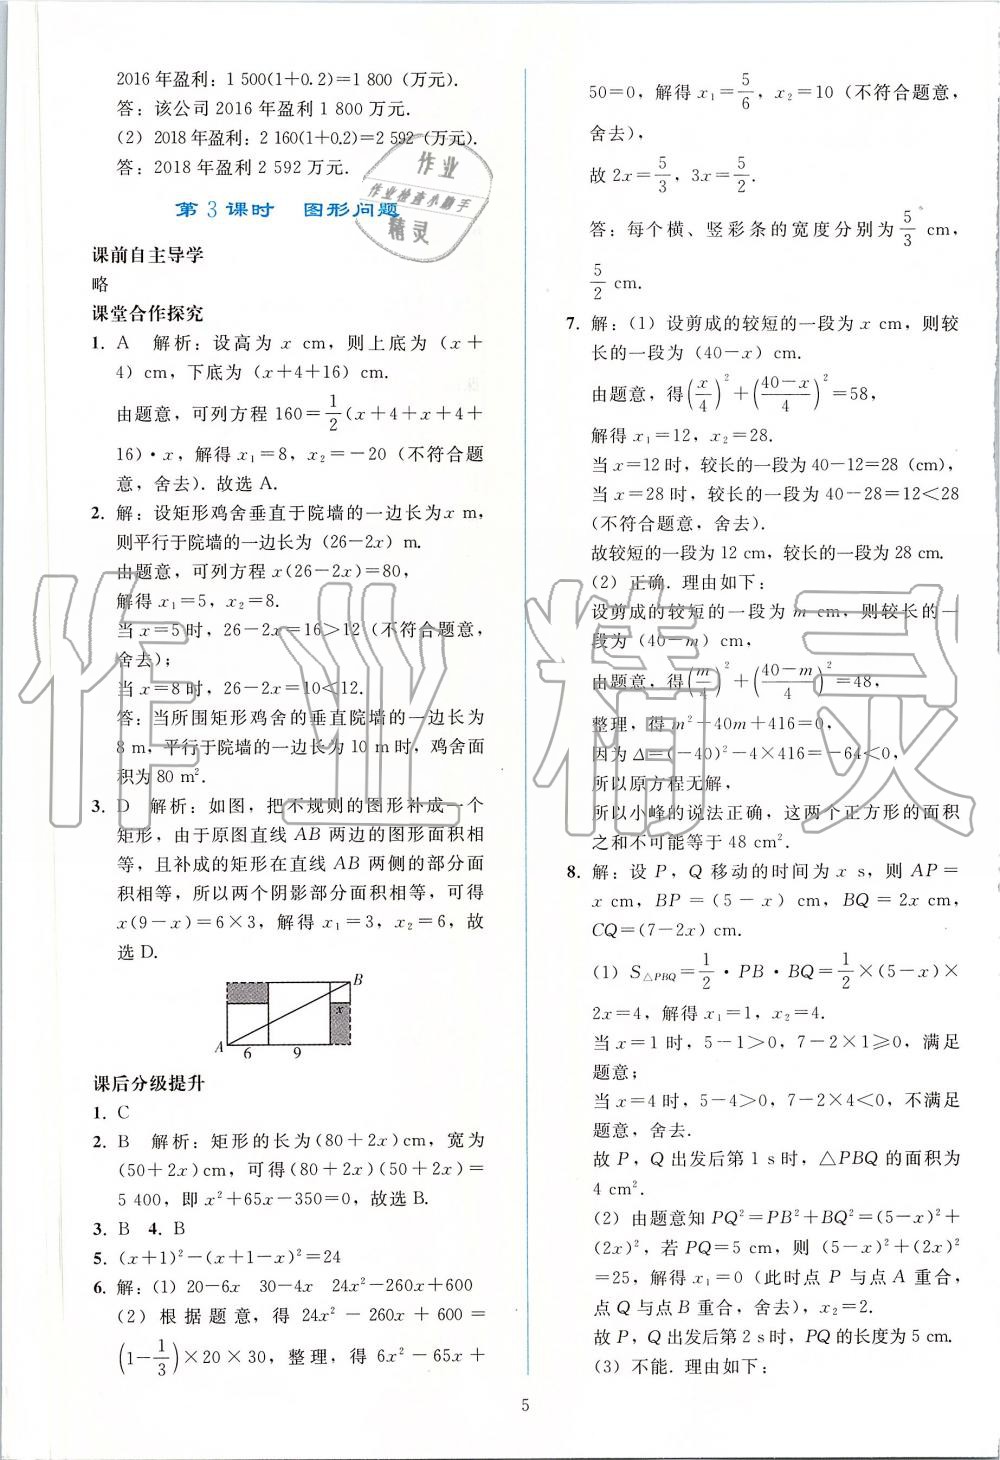 2016 年盈利：1 500(1+0.2)=1 800 (万元).
答：该公司 2016 年盈利 1 800 万元.
(2) 2018 年盈利：2 160(1+0.2)=2 592 (万元).
答：2018 年盈利 2 592 万元.
作业
作业检查小助手
精灵
第 3 课时　图形问题
课前自主导学
略
课堂合作探究
1. A　解析：设高为 x cm，则上底为 (x+
4) cm，下底为 (x+4+16) cm.
由题意，可列方程 160=1/2(x+4+x+4+
16)·x，解得 x₁=8，x₂=-20 (不符合题
意，舍去). 故选 A.
2. 解：设矩形鸡舍垂直于院墙的一边长为 x m，
则平行于院墙的一边长为 (26-2x) m.
由题意，可列方程 x(26-2x)=80，
解得 x₁=5，x₂=8.
当 x=5 时，26-2x=16>12 (不符合题意，
舍去)；
当 x=8 时，26-2x=10<12.
答：当所围矩形鸡舍的垂直院墙的一边长为
8 m，平行于院墙的一边长为 10 m 时，鸡舍面
积为 80 m².
3. D　解析：如图，把不规则的图形补成一个
矩形，由于原图直线 AB 两边的图形面积相
等，且补成的矩形在直线 AB 两侧的部分面
积相等，所以两个阴影部分面积相等，可得
x(9-x)=6×3，解得 x₁=3，x₂=6，故
选 D.
B
x
A
6
9
课后分级提升
1. C
2. B　解析：矩形的长为(80+2x)cm，宽为
(50+2x)cm，可得(80+2x)(50+2x)=
5 400，即 x²+65x-350=0，故选 B.
3. B　4. B
5. (x+1)²-(x+1-x)²=24
6. 解：(1) 20-6x　30-4x　24x²-260x+600
(2) 根据题意，得 24x²-260x+600=
(1-1/3)×20×30，整理，得 6x²-65x+
50=0，解得 x₁=5/6，x₂=10 (不符合题意，
舍去)，
故 2x=5/3，3x=5/2.
答：每个横、竖彩条的宽度分别为 5/3 cm，
5/2 cm.
7. 解：(1) 设剪成的较短的一段为 x cm，则较
长的一段为 (40-x) cm.
由题意，得(x/4)²+((40-x)/4)²=58，
解得 x₁=12，x₂=28.
当 x=12 时，较长的一段为 40-12=28 (cm)，
当 x=28 时，较长的一段为 40-28=12<28
(不符合题意，舍去).
故较短的一段为 12 cm，较长的一段为 28 cm.
(2) 正确. 理由如下：
设剪成的较短的一段为 m cm，则较长的一
段为 (40-m) cm，
由题意，得(m/4)²+((40-m)/4)²=48，
整理，得 m²-40m+416=0，
因为 Δ=(-40)²-4×416=-64<0，
所以原方程无解，
所以小峰的说法正确，这两个正方形的面积
之和不可能等于 48 cm².
8. 解：设 P，Q 移动的时间为 x s，则 AP=
x cm，BP=(5-x) cm，BQ=2x cm，
CQ=(7-2x) cm.
(1) S△PBQ=1/2·PB·BQ=1/2×(5-x)×
2x=4，解得 x₁=1，x₂=4.
当 x=1 时，5-1>0，7-2×1≥0，满足
题意；
当 x=4 时，5-4>0，7-2×4<0，不满足
题意，舍去.
故 P，Q 出发后第 1 s 时，△PBQ 的面积为
4 cm².
(2) 由题意知 PQ²=PB²+BQ²=(5-x)²+
(2x)²，若 PQ=5 cm，则 (5-x)²+(2x)²
=25，解得 x₁=0 (此时点 P 与点 A 重合，
点 Q 与点 B 重合，舍去)，x₂=2.
故 P，Q 出发后第 2 s 时，PQ 的长度为 5 cm.
(3) 不能. 理由如下：
作业精灵
5